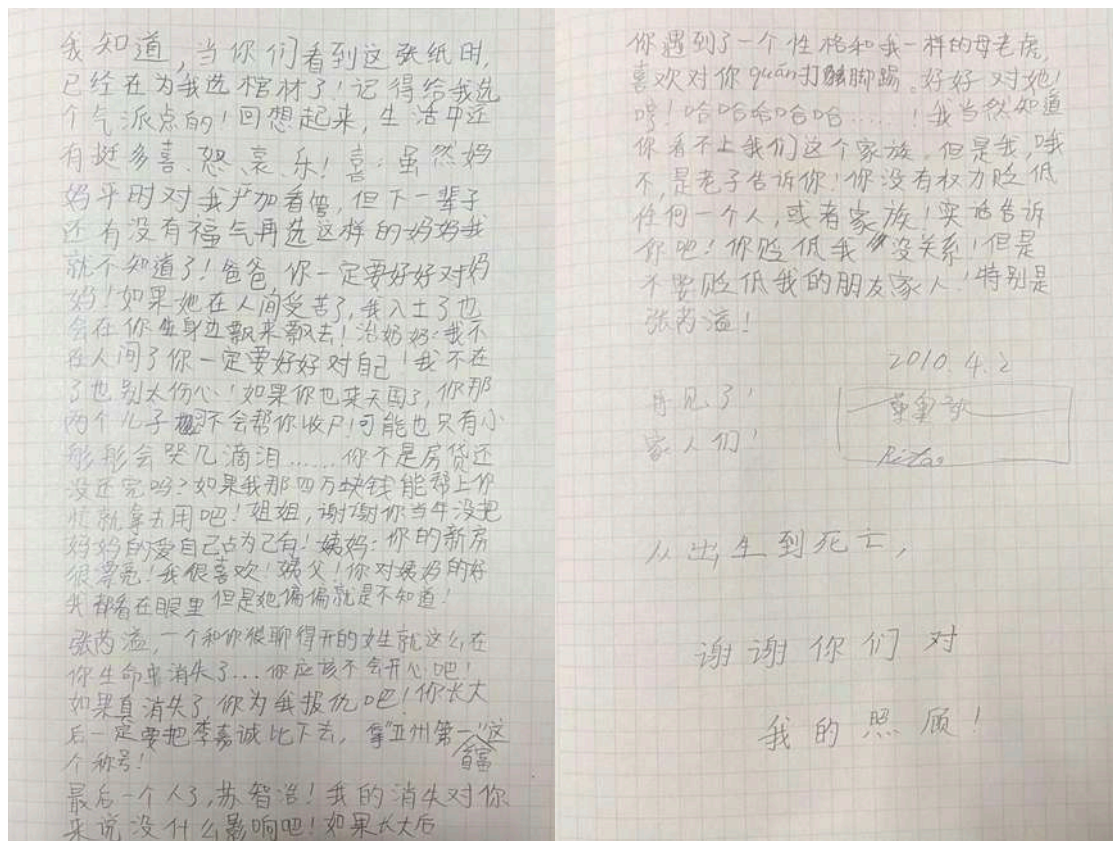 我知道,当你们看到这张纸时,
已经在为我选棺材了!记得给我选
个气派点的!回想起来,生活中还
有挺多喜、怒、哀、乐!喜:虽然妈
妈平时对我严加看管,但下一辈子
还有没有福气再选这样的妈妈我
就不知道了!爸爸,你一定要好好对妈
妈!如果她在人间受苦了,我入土了也
会在你身边飘来飘去!治奶奶:我不
在人间了你一定要好好对自己!我不在
了也别太伤心!如果你也来天国了,你那
两个儿子不会帮你收尸!可能也只有小
彤彤会哭几滴泪……你不是房贷还
没还完吗?如果我那四万块钱能帮上你
忙就拿去用吧!姐姐,谢谢你当年没把
妈妈的爱自己占为己有!姨妈:你的新房
很漂亮!我很喜欢!姨父!你对姨妈的好
我都看在眼里 但是她偏偏就是不知道!
张芮溢,一个和你很聊得开的女生就这么在
你生命中消失了...你应该不会开心吧!
如果真消失了 你为我报仇吧!你长大
后一定要把李嘉诚比下去,拿"亚州第一首富"这
个称号!
最后一个人了,苏智浩!我的消失对你
来说没什么影响吧!如果长大后
你遇到了一个性格和我一样的母老虎,
喜欢对你quán打脚踢。好好对她!
哈哈哈哈哈……!我当然知道
你看不上我们这个家族。但是我,哦
不,是老子告诉你!你没有权力贬低
任何一个人,或者家族!实话告诉
你吧!你贬低我没关系!但是
不要贬低我的朋友家人!特别是
张芮溢!
2010.4.2
再见了!
家人们!
Rita
从出生到死亡,
谢谢你们对
我的照顾!